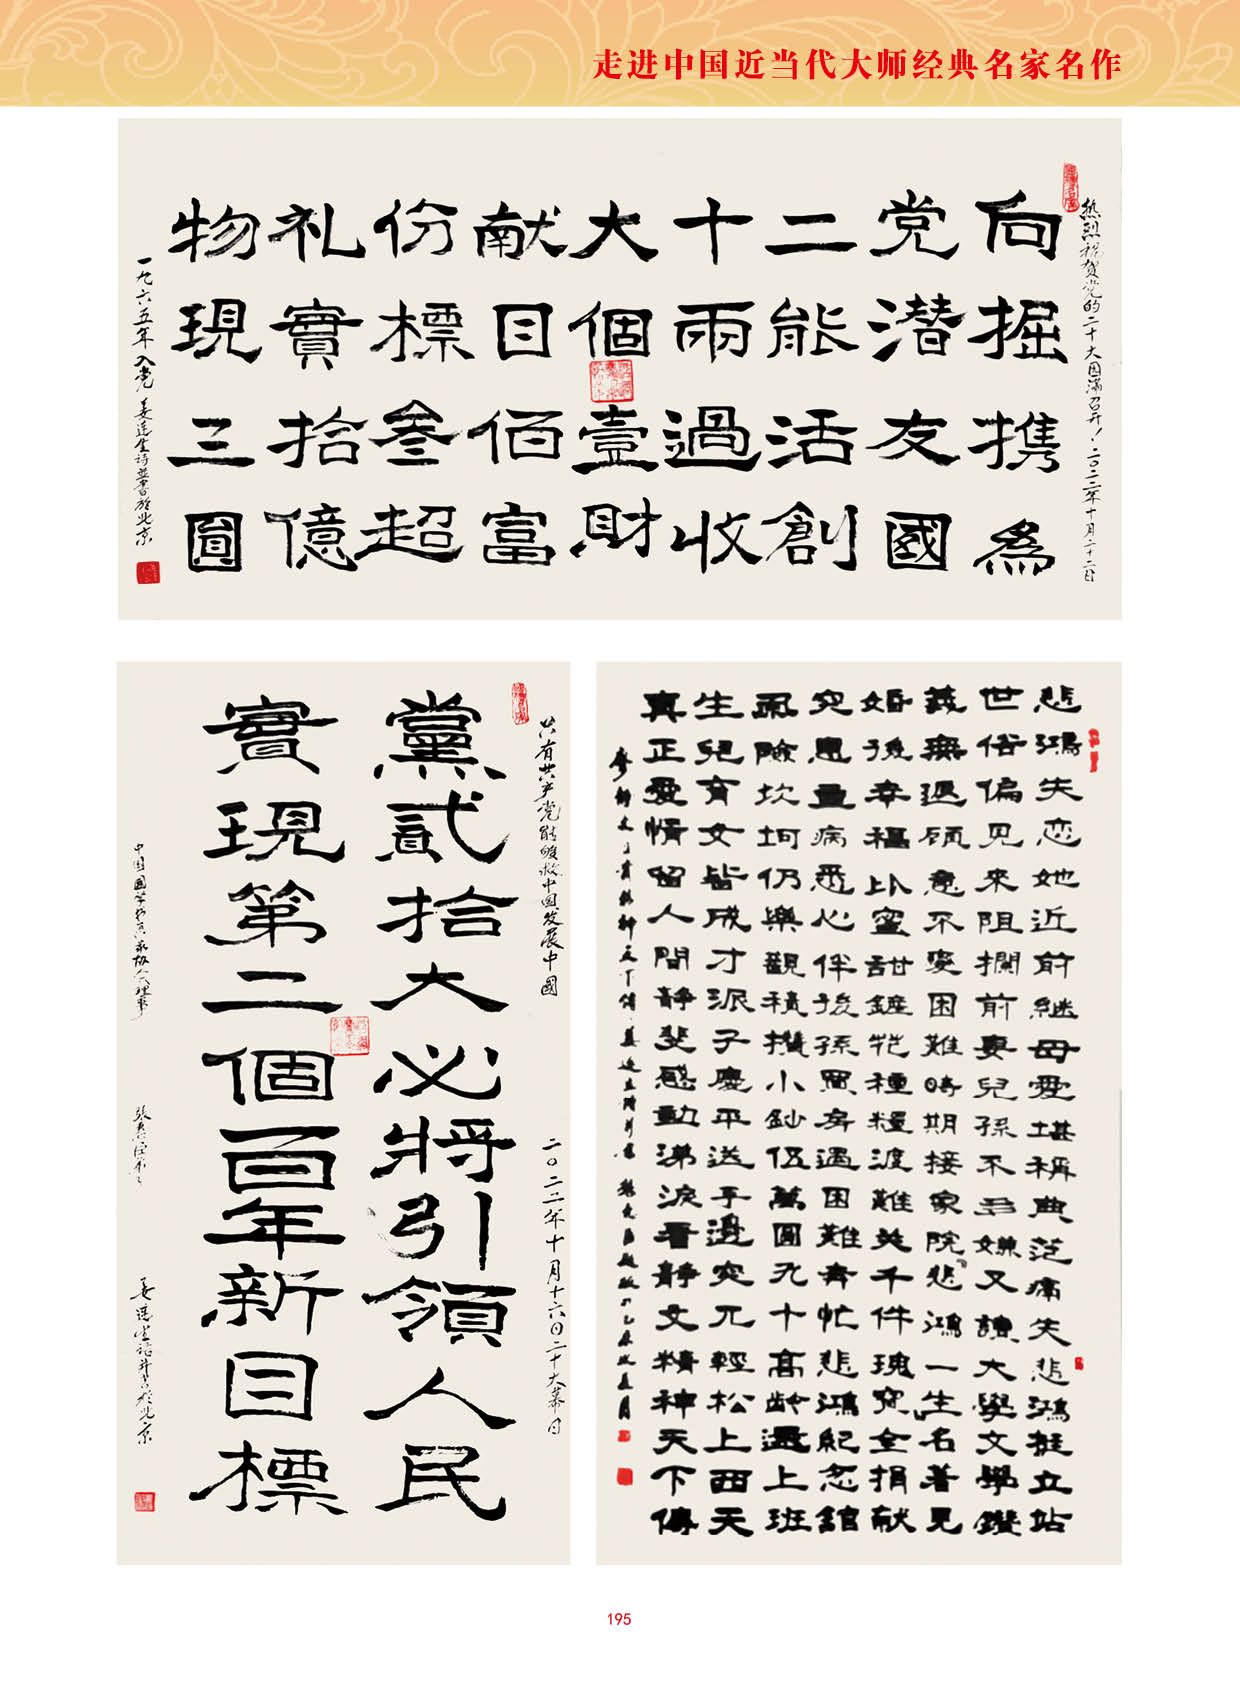 走进中国近当代大师经典名家名作
热烈祝贺党的二十大圆满召开！二〇二二年十月二十二日
向党二十大献份礼物
掘潜能兩個目標實現
携友活過壹佰叁拾三
為國創收財富超億圓
一九六五年入党 姜连生诗並書於北京
只有共产党能够救中国发展中國
黨貳拾大必將引領人民
二〇二二年十月十六日二十大幕日
實現第二個百年新目標
姜连生诗并书於北京
悲鴻失恋她近前継母愛堪稱典范痛失悲鴻挺立站
世俗偏見来阻攔前妻兒孫不弃嫌又讀大學文學鑽
義無返顾意不变困難時期接家院悲鴻一生名著見
婚後幸福比蜜甜種糧渡難关千件瑰宝全捐献
突患重病悉心伴後孫買房遇困難奔忙悲鴻紀念舘
風險坎坷仍樂觀積攢小鈔伍萬圓九十高龄還上班
生兒育女皆成才派子慶平送手邊突兀輕松上西天
真正愛情留人間静斐感動涕淚看静文精神天下傳
195